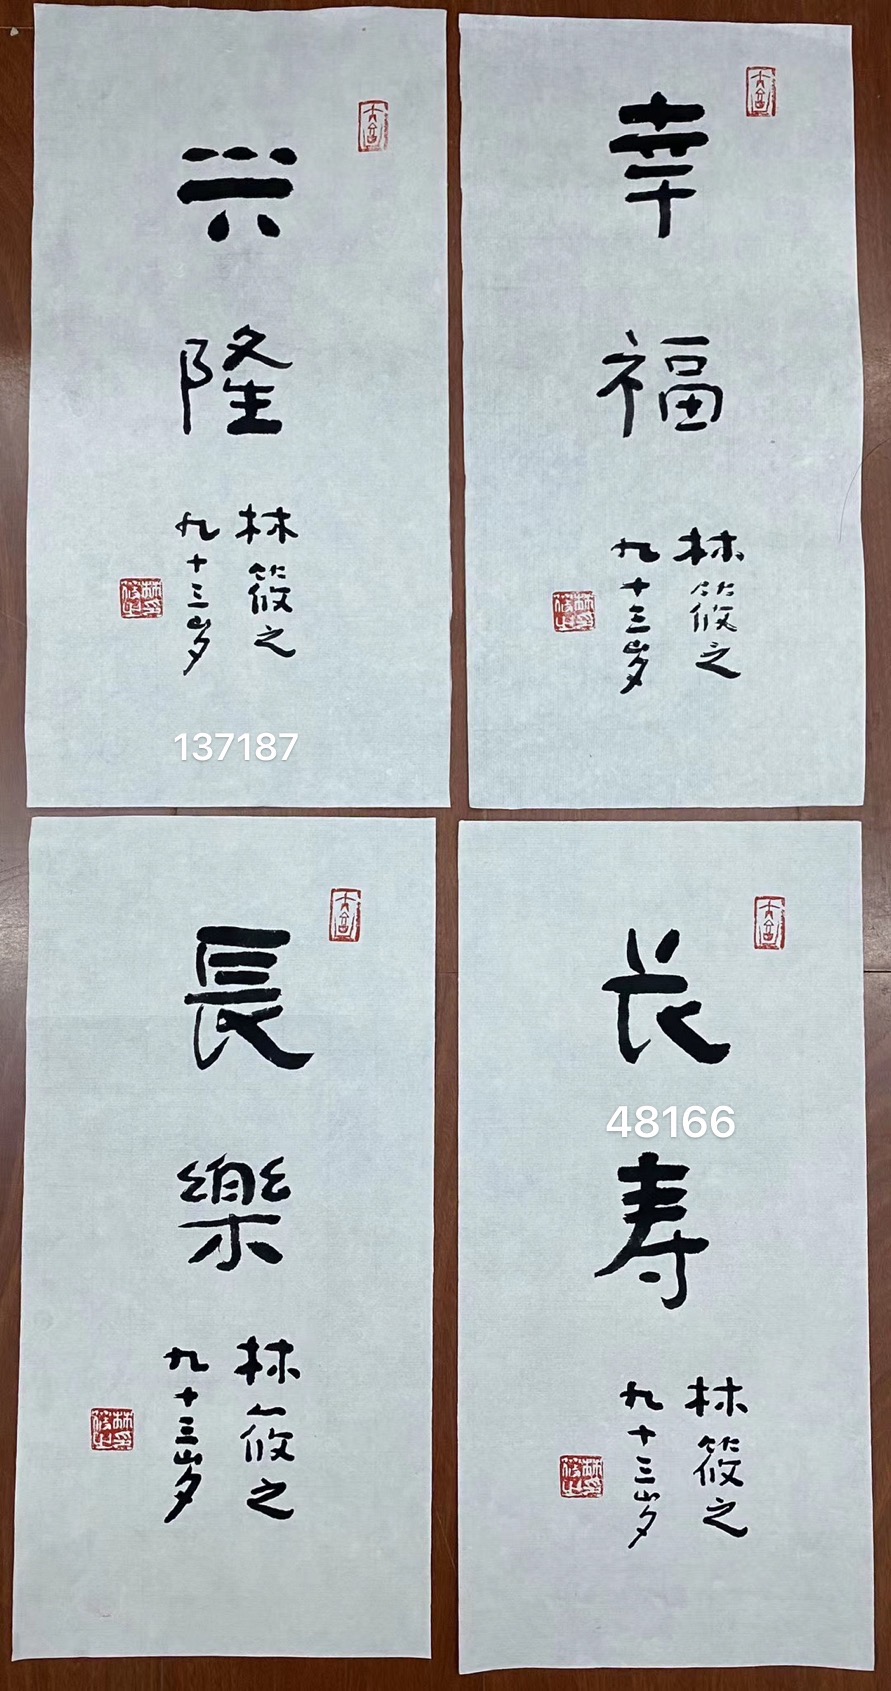 兴隆
林筱之
九十三岁
137187
幸福
林筱之
九十三岁
長樂
林筱之
九十三岁
长寿
48166
林筱之
九十三岁